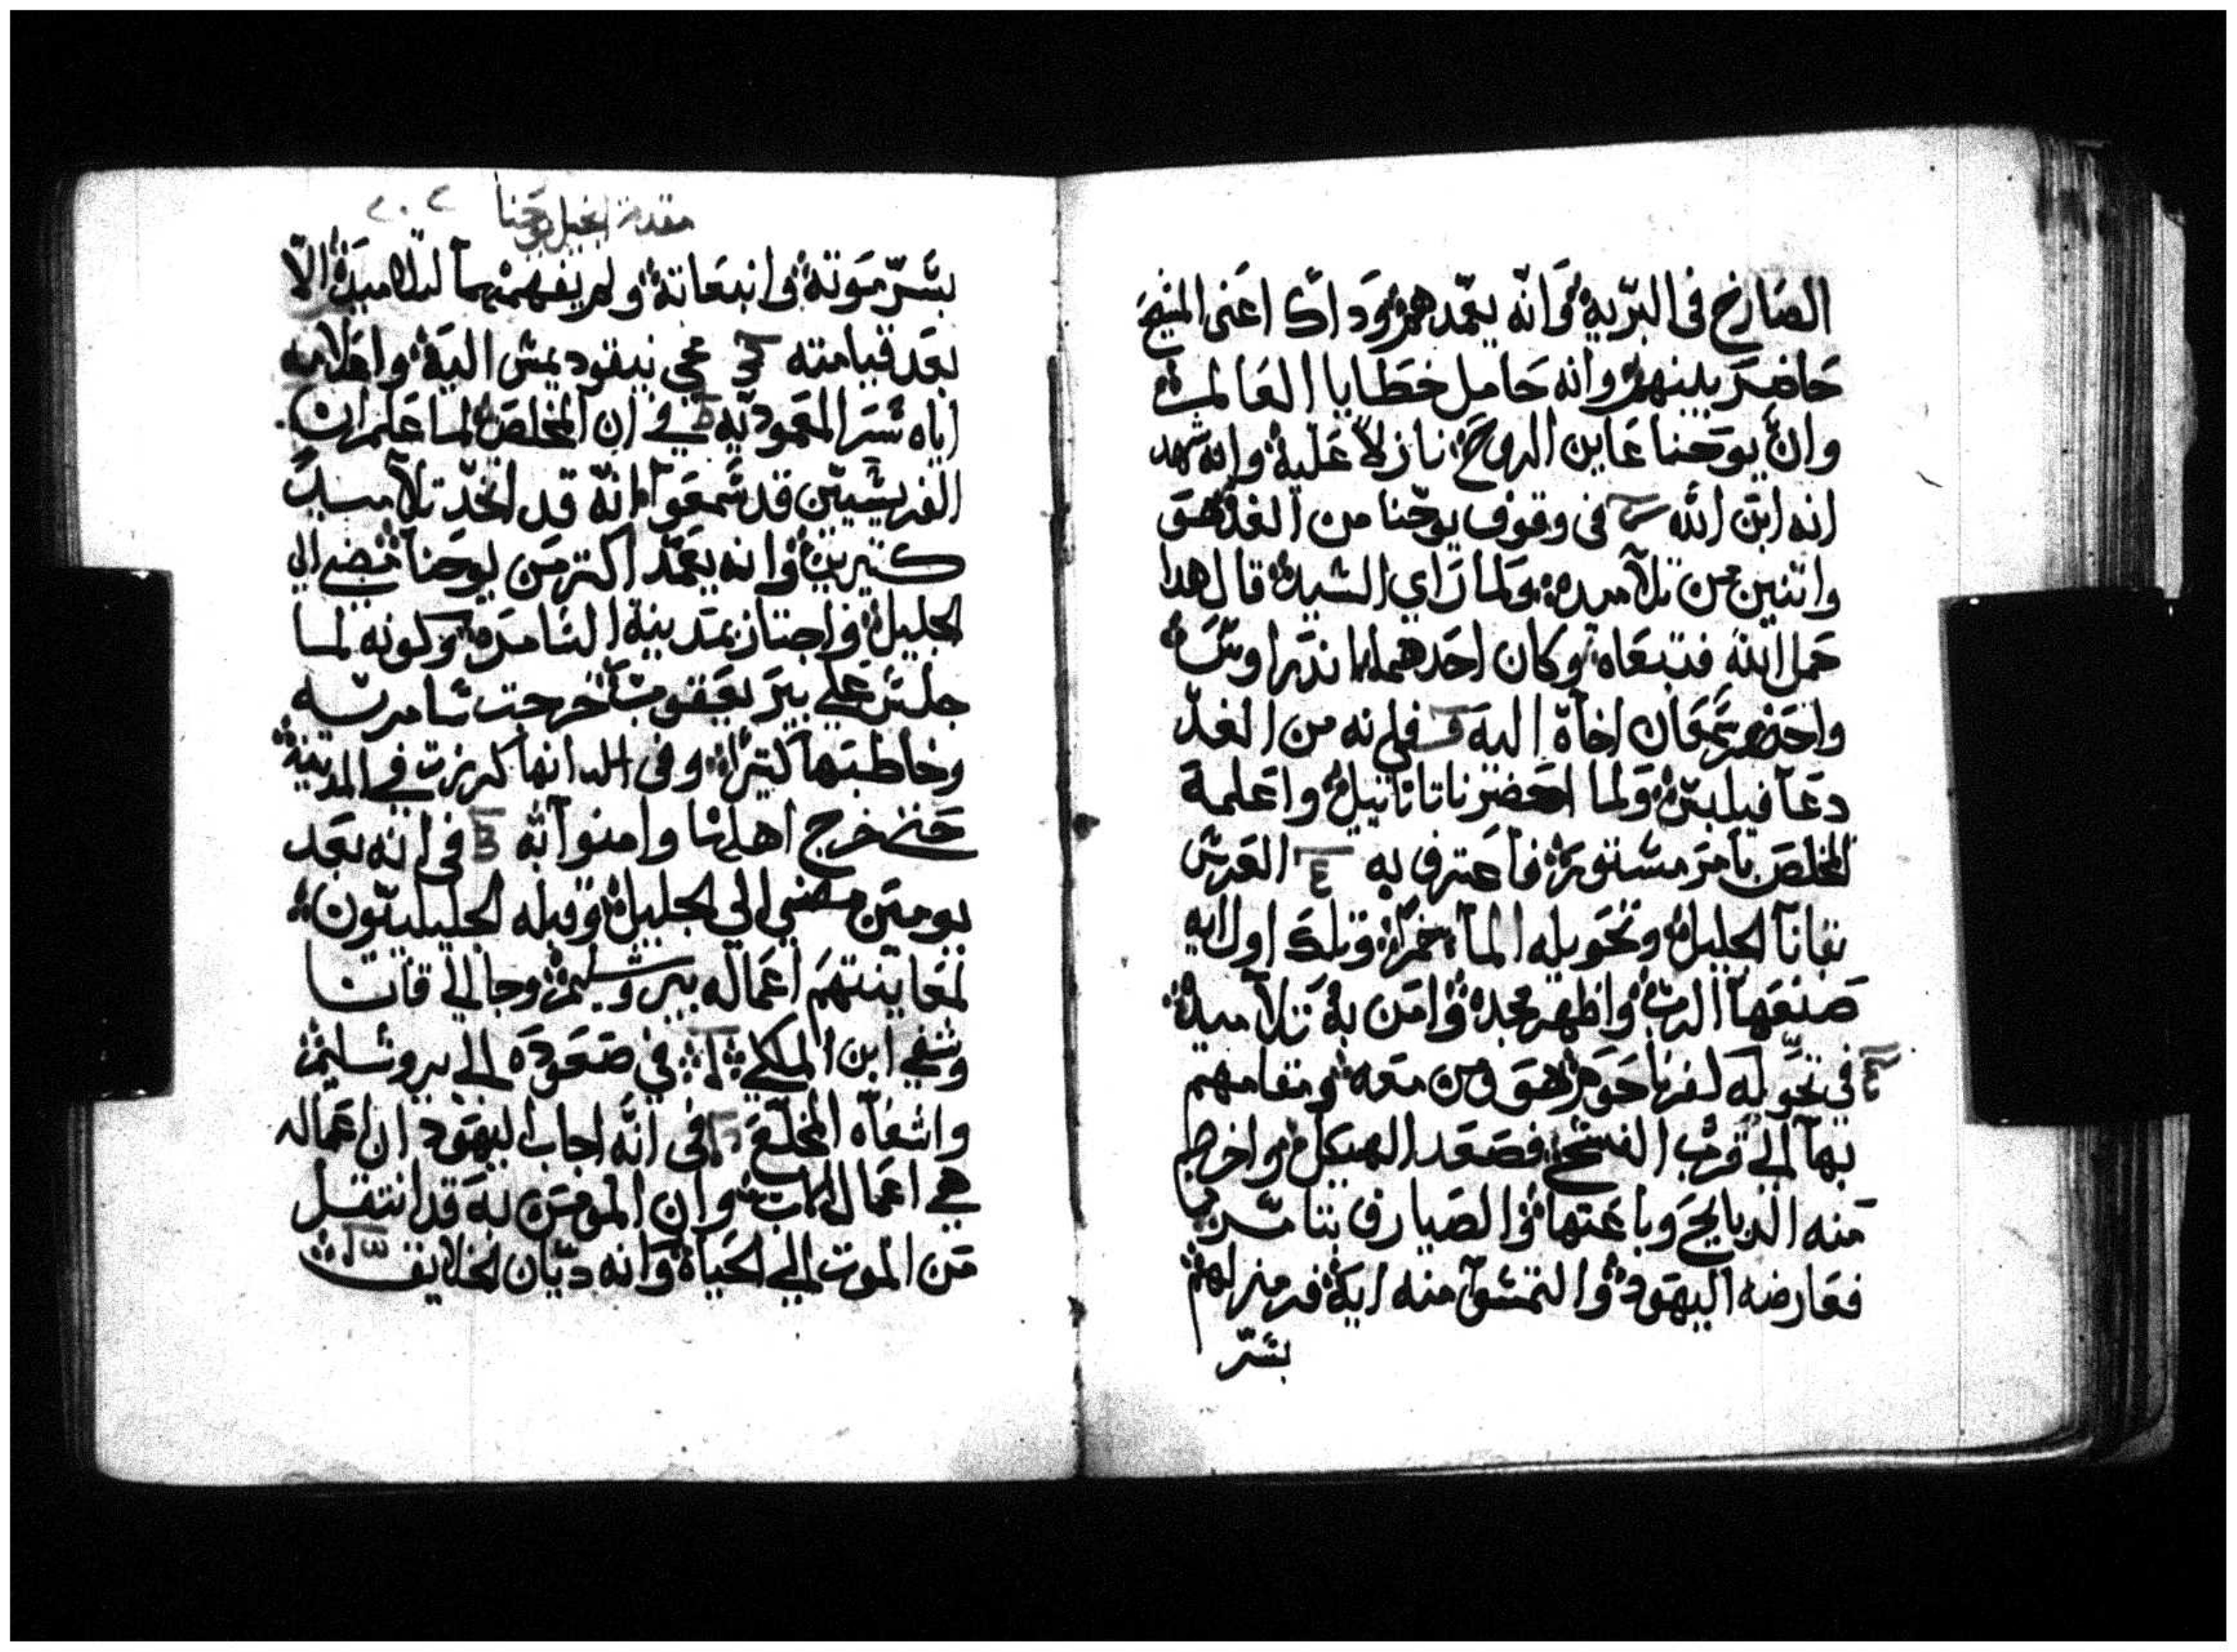 الصارخ فى البرية وانه يعمدهم وداك اعنى المسيح
حاضر بينهم وانه حامل خطايا العالم
وان يوحنا عاين الروح نازلا علية وانه شهد
انه ابن الله في وقوف يوحنا من الغد هو
واتنين من تلاميده ولما راي السيد قال هدا
حمل الله فتبعاه وكان احدهما اندراوس
واحضر سمعان اخاة الية فلانه من الغد
دعا فيلبس ولما احضر ناتانائيل واعلمة
المخلص بامر مستور فاعترف به العرس
بقانا الجليل وتحويله الما خمرا وتلك اول ايه
صنعها الرب واظهر مجده وامن بة تلاميدة
في تحوله لفرناحوم هو ومن معه ومقامهم
بها الي قرب الفسح فصعد الهيكل واخرج
منه الدبايح وباعتها والصيارف
فعارضه اليهود والتمسوا منه اية فرمز لهم
بسر
مقدمة انجيل يوحنا ٢٠٢
بسر موتة وانبعاتة ولم يفهمها التلاميد الا
بعد قيامته مجي نيقوديمس الية واعلامه
اياه سر المعمودية في ان المخلص لما علم ان
الفريسيين قد سمعوا انه قد اتخد تلاميد
كتيرين وانه يعمد اكتر من يوحنا مضي الي
الجليل واجتاز بمدينة السامرة وكونه لما
جلس علي بير يعقوب خرجت سامريه
وخاطبتها كتيرا وفى انها كرزت في المدينة
حتى خرج اهلها وامنوا به في انه بعد
يومين مضي الي الجليل وقبله الجليليون
لمعاينتهم اعماله بيروشليم وجا الي قانا
وشفي ابن الملكي في صعوده الي يروشليم
واشفاه المخلع في انه اجاب اليهود ان اعماله
هي اعمال الاب وان المومن به قد انتقل
من الموت الي الحياة وانه ديان الخلايق